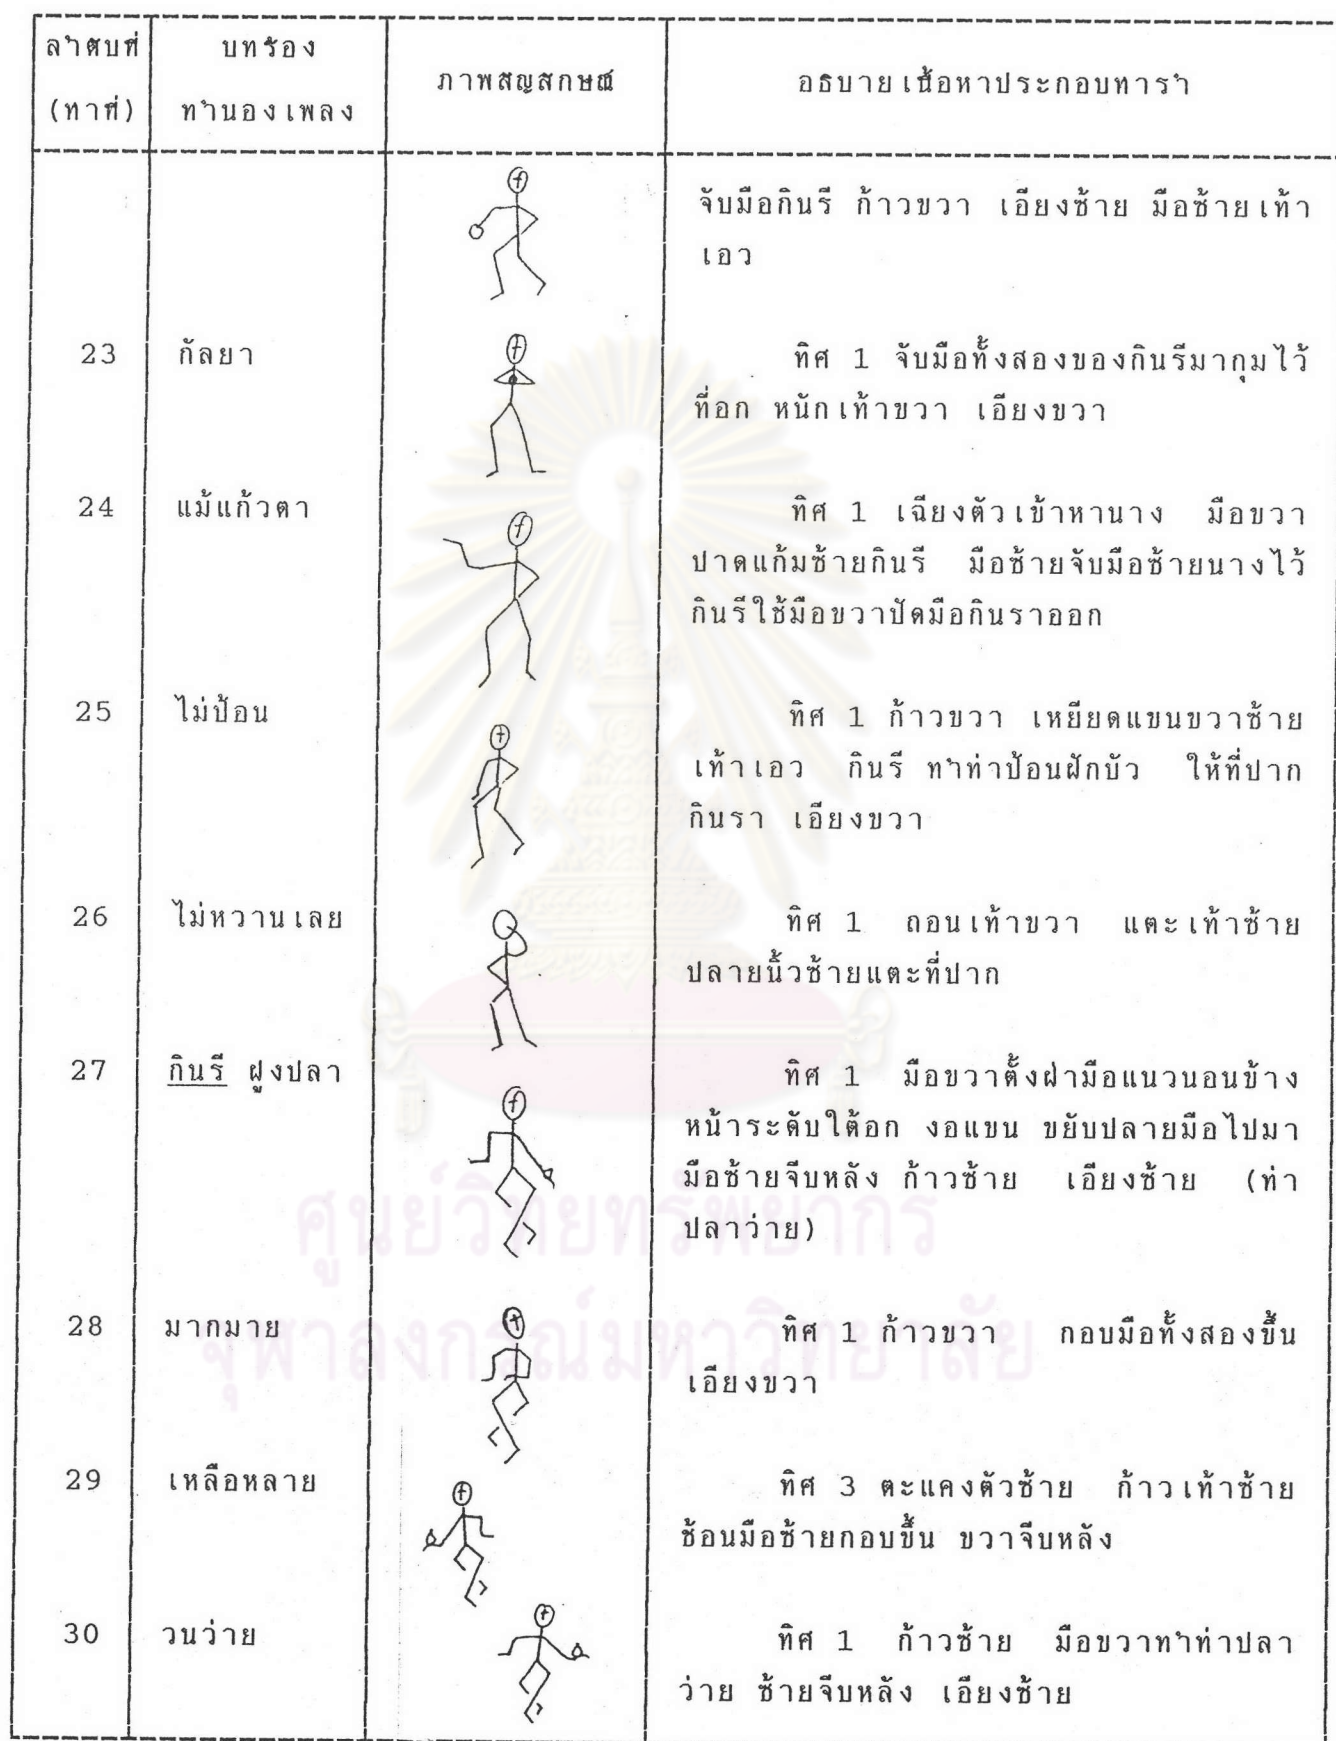 ลำดับที่ บทร้อง ภาพสัญลักษณ์ อธิบายเนื้อหาประกอบท่ารำ
(ท่าที่) ทำนองเพลง
จับมือกินรี ก้าวขวา เอียงซ้าย มือซ้ายเท้า
เอว
23 กัลยา ทิศ 1 จับมือทั้งสองของกินรีมากุมไว้
ที่อก หนักเท้าขวา เอียงขวา
24 แม้แก้วตา ทิศ 1 เฉียงตัวเข้าหานาง มือขวา
ปาดแก้มซ้ายกินรี มือซ้ายจับมือซ้ายนางไว้
กินรีใช้มือขวาปัดมือกินราออก
25 ไม่ป้อน ทิศ 1 ก้าวขวา เหยียดแขนขวาซ้าย
เท้าเอว กินรี ทำท่าป้อนฝักบัว ให้ที่ปาก
กินรา เอียงขวา
26 ไม่หวานเลย ทิศ 1 ถอนเท้าขวา แตะเท้าซ้าย
ปลายนิ้วซ้ายแตะที่ปาก
27 กินรี ฝูงปลา ทิศ 1 มือขวาตั้งฝ่ามือแนวนอนข้าง
หน้าระดับใต้อก งอแขน ขยับปลายมือไปมา
มือซ้ายจีบหลัง ก้าวซ้าย เอียงซ้าย (ท่า
ปลาว่าย)
28 มากมาย ทิศ 1 ก้าวขวา กอบมือทั้งสองขึ้น
เอียงขวา
29 เหลือหลาย ทิศ 3 ตะแคงตัวซ้าย ก้าวเท้าซ้าย
ช้อนมือซ้ายกอบขึ้น ขวาจีบหลัง
30 วนว่าย ทิศ 1 ก้าวซ้าย มือขวาทำท่าปลา
ว่าย ซ้ายจีบหลัง เอียงซ้าย
ศูนย์วิทยทรัพยากร
จุฬาลงกรณ์มหาวิทยาลัย